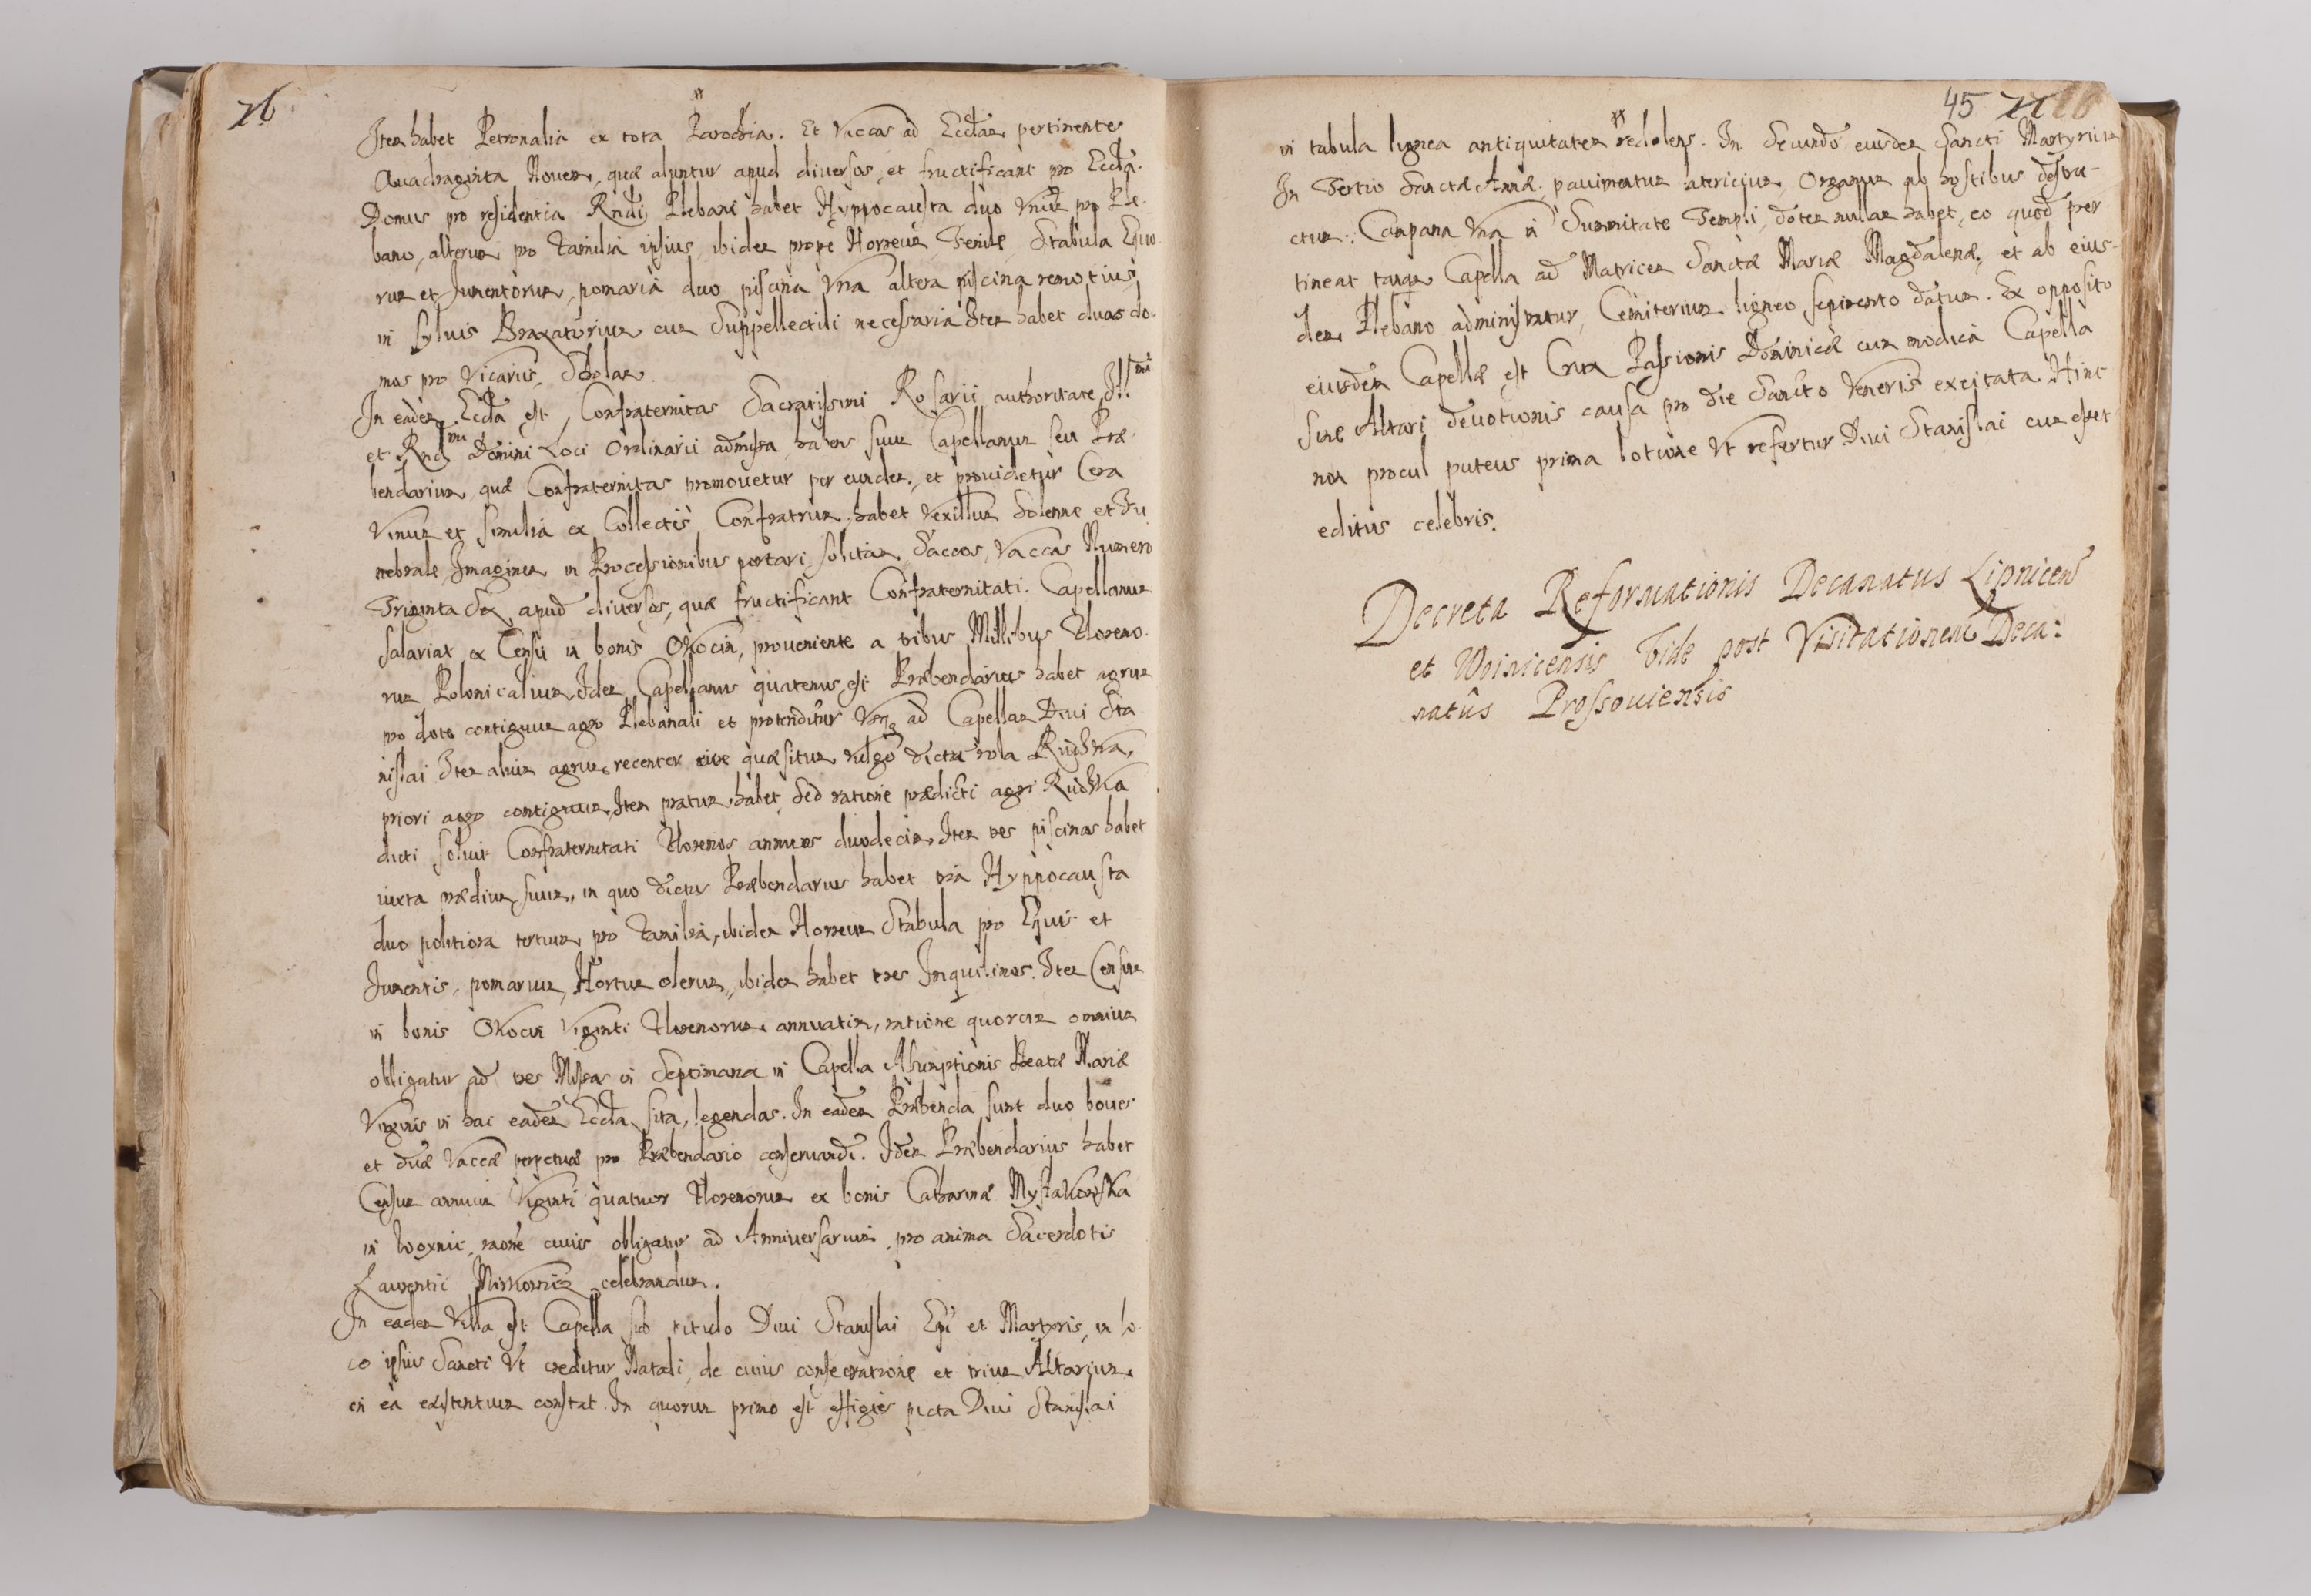 76
Item habet Petronalia ex tota Parochia. Et Vaccas ad Eccłam pertinentes
Quadraginta Novem, quæ aluntur apud diversos, et fructificant pro Eccła.
Domus pro residentia Rndi Plebani habet Hyppocausta duo Unum pro Ple-
bano, alterum pro Familia ipsius, ibidem prope Horreum, Fenile, Stabula Equo-
rum et Jumentorum, pomaria duo piscina Una altera piscina remotius
in sylvis Braxatorium cum Suppellectili necessaria Item habet duas do-
mos pro Vicariis, Scholam.
In eadem Eccła est Confraternitas Sacratissimi Rosarii authoritate Ill:mi
et Rnd:mi Domini Loci Ordinarii admissa, habens suum Capellanum seu Præ-
bendarium, quæ Confraternitas promovetur per eundem, et providetur Cera
Vinum et similia ex Collectis Confratrum, habet Vexillum Solenne et Fu
nebrale, Imaginem in Processionibus portari solitam, Saccos, Vaccas Numero
Triginta Sex apud diversos, quæ fructificant Confraternitati. Capellanum
salariat ex Censu in bonis Okocin, proveniente a tribus Millibus Floreno-
rum Polonicalium. Idem Capellanus quatenus est Præbendarius habet agrum
pro dote contiguum agro Plebanali et protenditur Vsq3 ad Capellam Divi Sta
nislai Item alium agrum recenter quæsitum vulgo dictum rola Rudkka,
priori agro contiguum, Item pratum habet, Sed ratione prædicti agri Rudkka
dicti solvit Confraternitati Florenos annuos duodecim, Item tres piscinas habet
iuxta prædium suum, in quo dictus Præbendarius habet tria Hyppocausta
duo politiora tertium pro Familia, ibidem Horreum Stabula pro Equis et
Jumentis, pomarium, Hortum olerum, ibidem habet tres Inquilinos. Item Censum
in bonis Okocin Viginti Florenorum annuatim, ratione quorum omnium
obligatur ad tres Missas in Septimana in Capella Assumptionis Beatæ Mariæ
Virginis in hac eadem Eccła sita, legendas. In eadem Præbenda sunt duo boves
et duæ Vaccæ perpetuæ pro Præbendario conservandi. Idem Præbendarius habet
Censum annuum Viginti quatuor Florenorum ex bonis Catharinæ Mystakowska
in Woxnic, raone cuius obligatur ad Anniversarium pro anima Sacerdotis
Laurentii celebrandum.
In eadem Villa est Capella sub titulo Divi Stanislai Epi et Martyris, in lo-
co ipsius Sancti Vt creditur Natali, de cuius consecratione et trium Altarium
in ea existentium constat. In quorum primo est effigies picta Divi Stanislai
45 77
in tabula lignea antiquitatem redolens. In Secundo eiusdem Sancti Martyrium
In Tertio Sanctæ Annæ, pavimentum latericium, Organum ab hostibus destru-
ctum: Campana Una in Summitate Templi, dotem nullam habet, eo quod per
tineat tanqm Capella ad Matricem Sanctæ Mariæ Magdalenæ, et ab eius-
dem Plebano administratur, Cemiterium ligneo sepimento datum. Ex opposito
eiusdem Capellæ est Crux Passionis Dominicæ cum modica Capella
sine Altari devotionis causa pro die Sancto Veneris excitata. Hinc
non procul puteus prima lotione Vt refertur Divi Stanislai cum esset
editus celebris.
Decreta Reformationis Decanatus Lipnicens
et Woinicensis Vide post Visitationem Deca:
natûs Prossoviensis